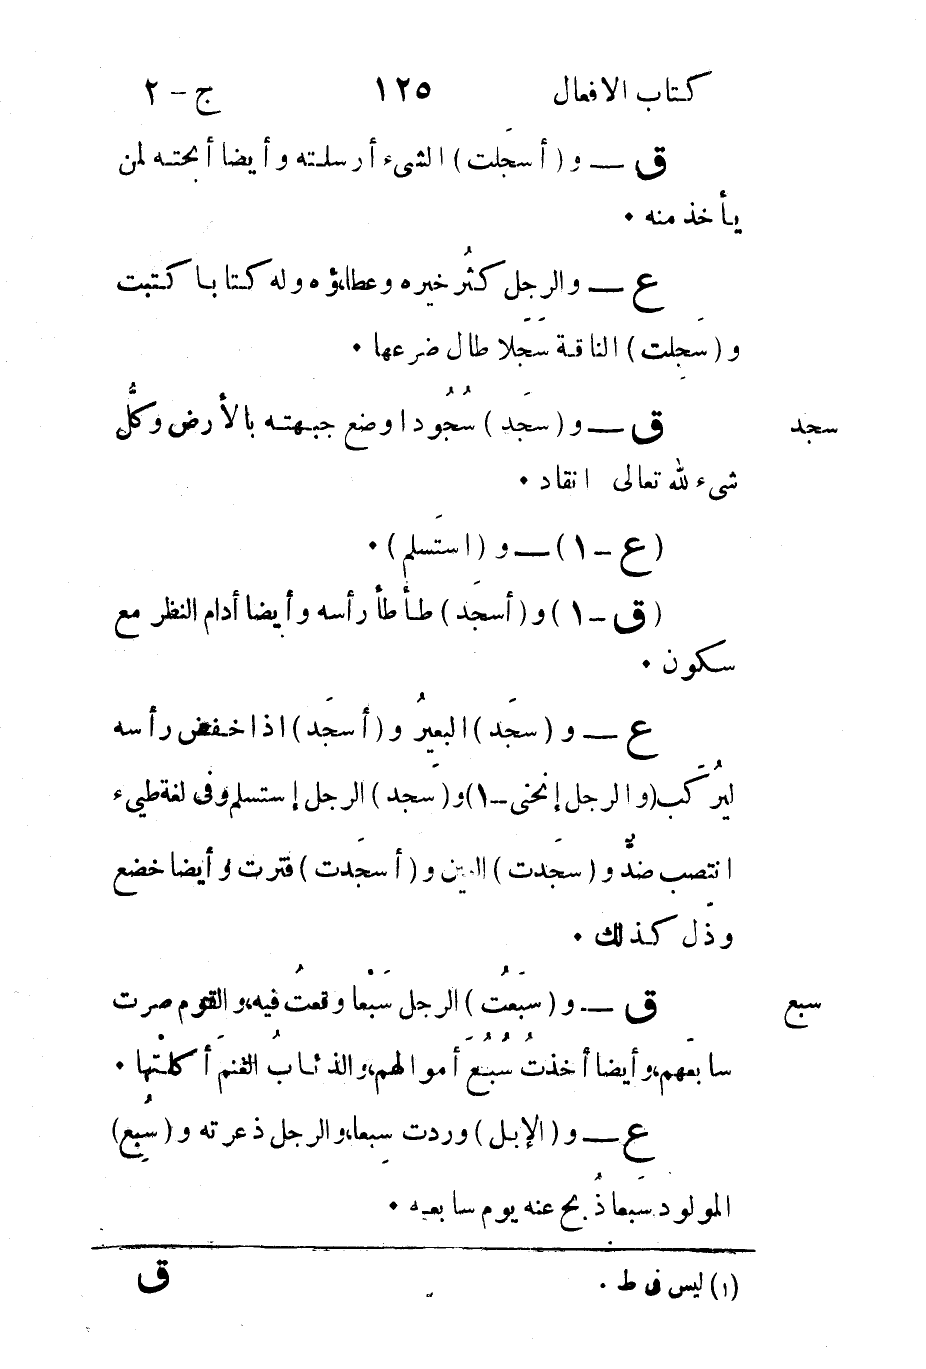 كتاب الافعال ١٢٥ ج - ٢
ق — و (أسجَلت) الشىء أرسلته وأيضا أبحته لمن
يأخذ منه ٠
ع — والرجل كثُر خيره وعطاؤه وله كتابا كتبت
و (سَجِلت) الناقة سَجَلا طال ضرعها ٠
سجد ق — و (سجَد) سُجُودا وضع جبهته بالأرض وكلُّ
شىء لله تعالى انقاد ٠
(ع - ١) — و (استَسلم) ٠
(ق - ١) و (أسجَد) طأطأ رأسه وأيضا أدام النظر مع
سكون ٠
ع — و (سجَد) البعيرُ و (أسجَد) اذا خفض رأسه
ليُركَب (والرجل إنحنى - ١) و (سجد) الرجل إستسلم وفى لغة طيء
انتصب ضدٌّ و (سجَدت) العين و (أسجَدت) فترت وأيضا خضع
وذَل كذلك ٠
سبع ق — و (سبَعتُ) الرجل سَبْعا وقعتُ فيه، والقوم صرت
سابعَهم، وأيضا أخذتُ سُبُعَ أموالهم، والذئابُ الغنمَ أكلتْها ٠
ع — و (الإبل) وردت سِبعا، والرجل ذعرته و (سُبِع)
المولود سَبعا ذُبح عنه يوم سابعه ٠
(١) ليس فى ط ٠
ق